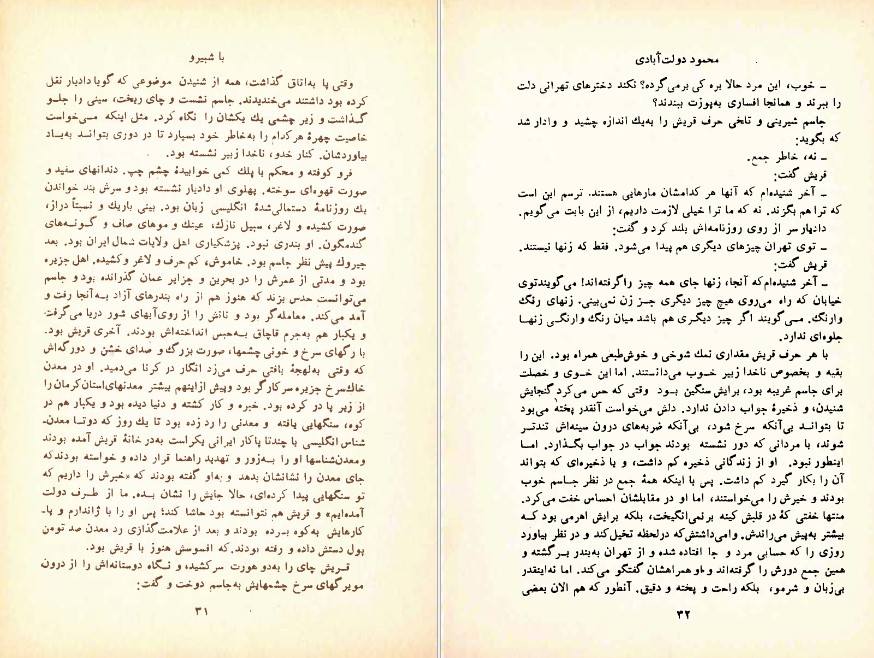 با شبیرو
وقتی پا به‌اتاق گذاشت، همه از شنیدن موضوعی که گویا دادیار نقل
کرده بود داشتند می‌خندیدند. جاسم نشست و چای ریخت، سینی را جلو
گذاشت و زیر چشمی یك یکشان را نگاه کرد. مثل اینکه می‌خواست
خاصیت چهرهٔ هرکدام را به‌خاطر خود بسپارد تا در دوری بتواند به‌یاد
بیاوردشان. کنار خدو، ناخدا زبیر نشسته بود.
فرو کوفته و محکم با پلك کمی خوابیدهٔ چشم چپ. دندانهای سفید و
صورت قهوه‌ای سوخته. پهلوی او دادیار نشسته بود و سرش بند خواندن
یك روزنامهٔ دستمالی‌شدهٔ انگلیسی زبان بود. بینی باریك و نسبتاً دراز،
صورت کشیده و لاغر، سبیل نازك، عینك و موهای صاف و گونه‌های
گندمگون. او بندری نبود. پزشکیاری اهل ولایات شمال ایران بود. بعد
جیروك پیش نظر جاسم بود. خاموش، کم حرف و لاغر وکشیده. اهل جزیره
بود و مدتی از عمرش را در بحرین و جزایر عمان گذرانده بود و جاسم
می‌توانست حدس بزند که هنوز هم از راه بندرهای آزاد به‌آنجا رفت و
آمد می‌کند. معامله‌گر بود و نانش را از روی‌آبهای شور دریا می‌گرفت
و یکبار هم به‌جرم قاچاق به‌حبس انداخته‌اش بودند. آخری قریش بود.
با رگهای سرخ و خونی چشمها، صورت بزرگ و صدای خشن و دورگه‌اش
که وقتی به‌لهجهٔ بافتی حرف می‌زد انگار در کرنا می‌دمید. او در معدن
خاك‌سرخ جزیره سرکارگر بود وپیش ازاینهم بیشتر معدنهای‌استان‌کرمان را
از زیر پا در کرده بود. خبره و کار کشته و دنیا دیده بود و یکبار هم در
کوه، سنگهایی یافته و معدنی را رد زده بود تا یك روز که دوتا معدن‌ـ
شناس انگلیسی با چندتا پاکار ایرانی یکراست به‌درخانهٔ قریش آمده بودند
ومعدن‌شناسها او را به‌زور و تهدید راهنما قرار داده و خواسته بودندکه
جای معدن را نشانشان بدهد و به‌او گفته بودند که «خبرش را داریم که
تو سنگهایی پیدا کرده‌ای، حالا جایش را نشان بده. ما از طرف دولت
آمده‌ایم» و قریش هم نتوانسته بود حاشا کند؛ پس او را با ژاندارم و پاـ
کارهایش به‌کوه برده بودند و بعد از علامت‌گذاری رد معدن صد تومن
پول دستش داده و رفته بودند. که افسوسش هنوز با قریش بود.
قریش چای را به‌دو هورت سرکشید، و نگاه دوستانه‌اش را از درون
مویرگهای سرخ چشمهایش به‌جاسم دوخت و گفت:
۳۱
محمود دولت‌آبادی
ـ خوب، این مرد حالا بره کی برمی‌گرده؟ نکند دخترهای تهرانی دلت
را ببرند و همانجا افساری به‌پوزت ببندند؟
جاسم شیرینی و تلخی حرف قریش را به‌یك اندازه چشید و وادار شد
که بگوید:
ـ نه، خاطر جمع.
قریش گفت:
ـ آخر شنیده‌ام که آنها هر کدامشان مارهایی هستند. ترسم این است
که ترا هم بگزند. نه که ما ترا خیلی لازمت داریم، از این بابت می‌گویم.
دادیار سر از روی روزنامه‌اش بلند کرد و گفت:
ـ توی تهران چیزهای دیگری هم پیدا می‌شود. فقط که زنها نیستند.
قریش گفت:
ـ آخر شنیده‌ام‌که آنجا، زنها جای همه چیز را گرفته‌اند! می‌گویندتوی
خیابان که راه می‌روی هیچ چیز دیگری جز زن نمی‌بینی. زنهای رنگ
وارنگ. می‌گویند اگر چیز دیگری هم باشد میان رنگ وارنگی زنها
جلوه‌ای ندارد.
با هر حرف قریش مقداری نمك شوخی و خوش‌طبعی همراه بود. این را
بقیه و بخصوص ناخدا زبیر خوب می‌دانستند. اما این خوی و خصلت
برای جاسم غریبه بود، برایش سنگین بود وقتی که حس می‌کرد گنجایش
شنیدن، و ذخیرهٔ جواب دادن ندارد. دلش می‌خواست آنقدر پخته می‌بود
تا بتواند بی‌آنکه سرخ شود، بی‌آنکه ضربه‌های درون سینه‌اش تندتر
شوند، با مردانی که دور نشسته بودند جواب در جواب بگذارد. اما
اینطور نبود. او از زندگانی ذخیره کم داشت، و یا ذخیره‌ای که بتواند
آن را بکار گیرد کم داشت. پس با اینکه همهٔ جمع در نظر جاسم خوب
بودند و خیرش را می‌خواستند، اما او در مقابلشان احساس خفت می‌کرد.
منتها خفتی که در قلبش کینه برنمی‌انگیخت، بلکه برایش اهرمی بود که
بیشتر به‌پیش می‌راندش. وامی‌داشتش‌که درلحظه تخیل‌کند و در نظر بیاورد
روزی را که حسابی مرد و جا افتاده شده و از تهران به‌بندر برگشته و
همین جمع دورش را گرفته‌اند و او همراهشان گفتگو می‌کند. اما نه‌اینقدر
بی‌زبان و شرمو، بلکه راحت و پخته و دقیق. آنطور که هم الان بعضی
۳۲